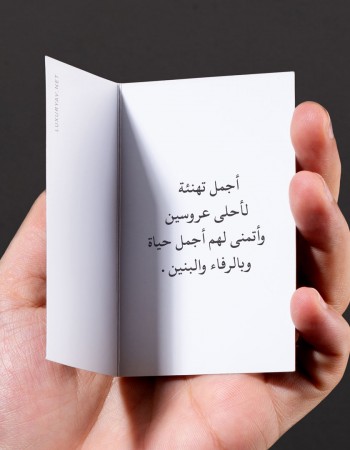 أجمل تهنئة
لأحلى عروسين
وأتمنى لهم أجمل حياة
وبالرفاء والبنين .
LUXURYBY.NET